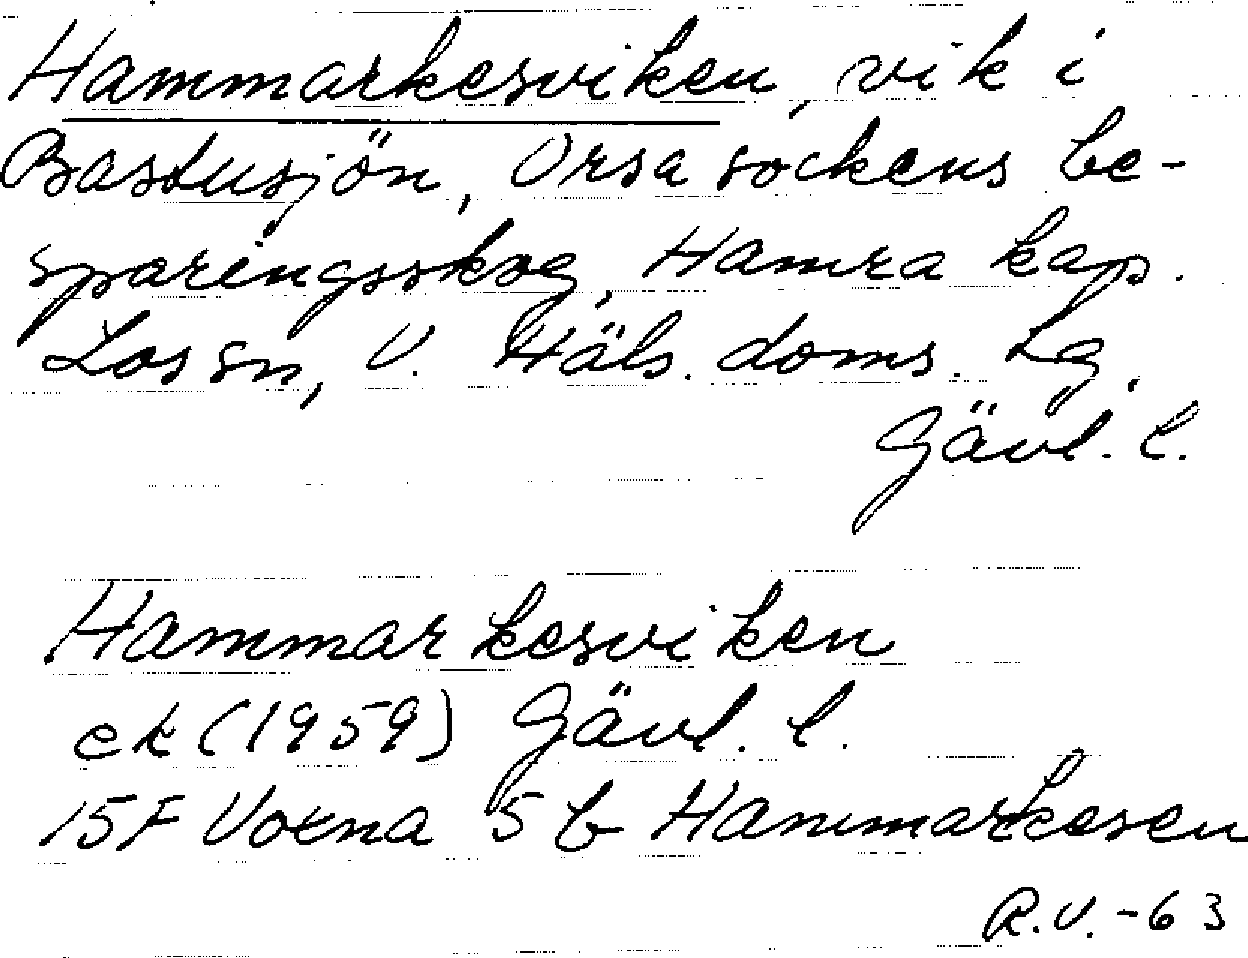 Hammarkesviken, vik i
Bastusjön, Orsa sockens be-
sparingsskog, Hamra kap.
Los sn, V. Häls. doms. Lg.
Gävl. l.
Hammarkesviken
ek (1959) Gävl. l.
15F Voxna 5b Hammarkesen
R.V. -63